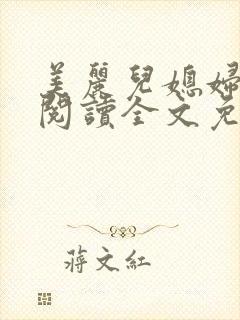 美麗兒媳婦
閱讀全文免
蔣文紅